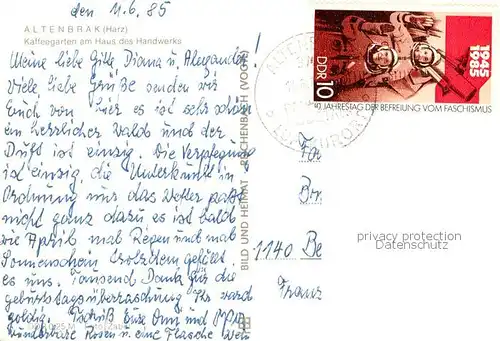 den 11.6.85
ALTENBRAK (Harz)
Kaffeegarten am Haus des Handwerks
Meine liebe Gitte Diana u. Alexander!
Viele liebe Grüße senden wir
Euch von hier es ist sehr schön
ein herrlicher Wald und der
Duft ist einzig. Die Verpflegung
ist einzig die Unterkunft in
Ordnung nur das Wetter paßt
nicht ganz dazu es ist halt
wie April mal Regen und mal
Sonnenschein trotzdem gefällt
es uns. Tausend Dank für die
Geburtstagsüberraschung Ihr ward
goldig. Tschüß Eure Omi und
wunderbare Rosen u. eine Flasche Wein
BILD UND HEIMAT REICHENBACH (VOGTL)
ALTENBRAK
DDR 10
1945
1985
40. JAHRESTAG DER BEFREIUNG VOM FASCHISMUS
1140 Be
Franz
privacy protection
Datenschutz